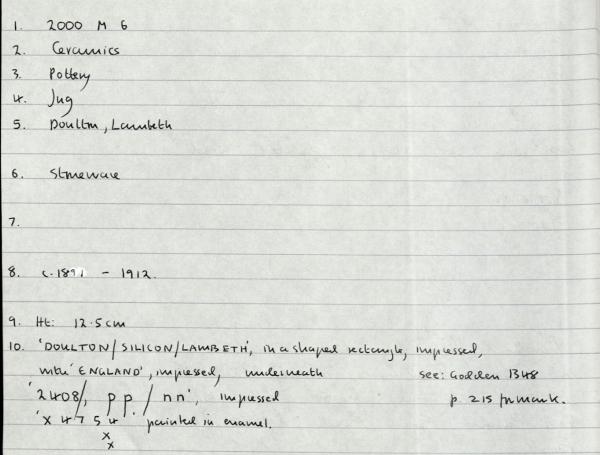 1. 2000 M 6
2. Ceramics
3. Pottery
4. Jug
5. Doulton, Lambeth
6. Stoneware
7.
8. c.1891 - 1912.
9. Ht: 12.5cm
10. 'DOULTON/SILICON/LAMBETH', in a shaped rectangle, impressed,
with 'ENGLAND', impressed, underneath see: Godden 1348
'2408/, pp./nn', impressed p. 215 for mark.
'x4754' painted in enamel.
x
x